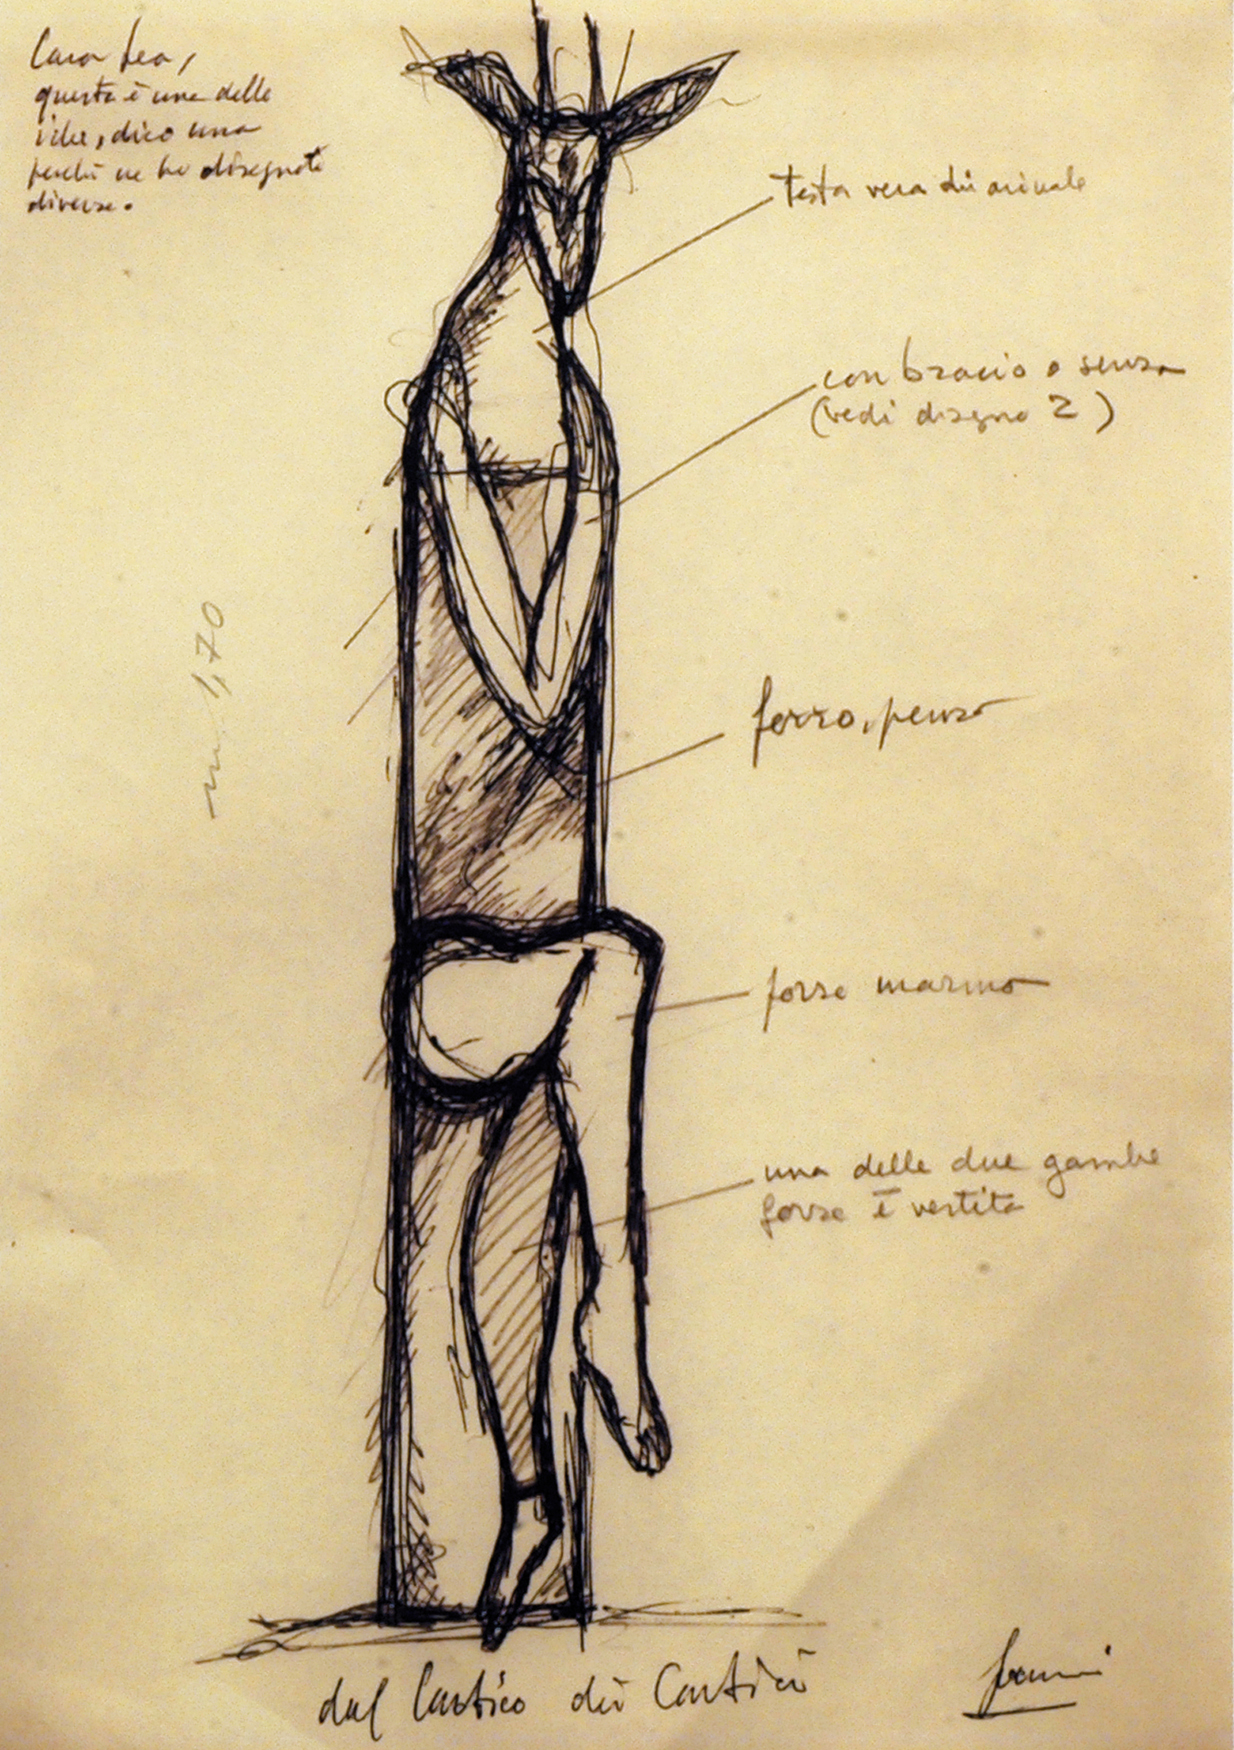 Cara Lea,
questa è una delle
idee, dico una
perché ne ho disegnate
diverse.
testa vera di animale
con bracio o senza
(vedi disegno 2)
ferro, penso
m. 1,70
forse marmo
una delle due gambe
forse è vestita
dal Cantico dei Cantici